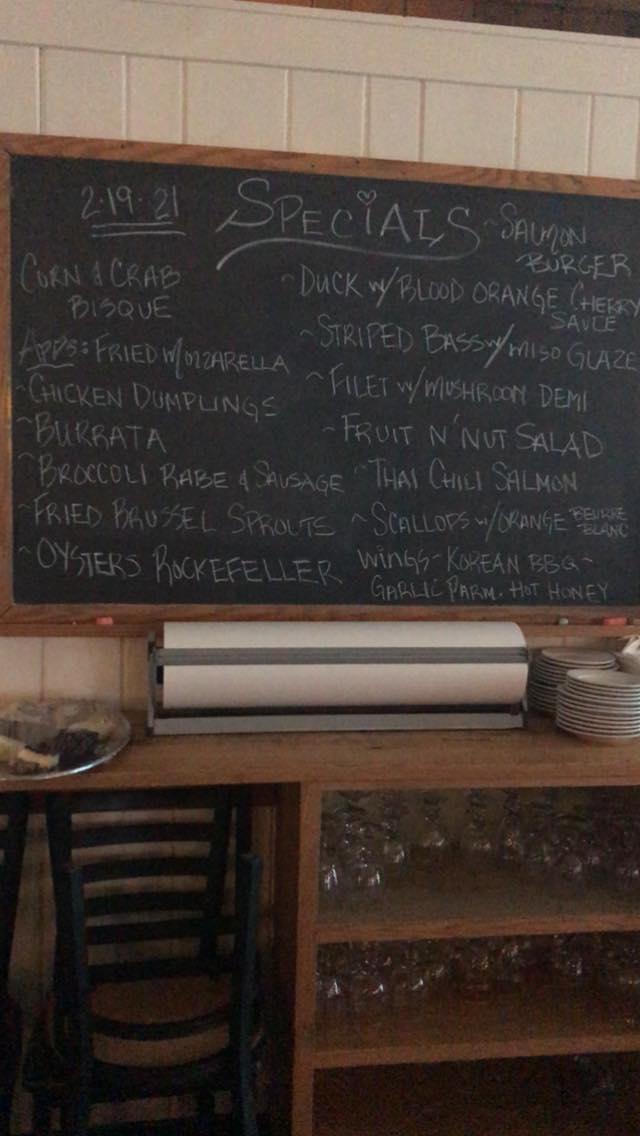 2·19·21
SPECiALS
CORN & CRAB
BISQUE
APPS: FRIED MOZZARELLA
~CHICKEN DUMPLINGS
~BURRATA
~BROCCOLI RABE & SAUSAGE
~FRIED BRUSSEL SPROUTS
~OYSTERS ROCKEFELLER
~SALMON
BURGER
~DUCK w/BLOOD ORANGE CHERRY
SAUCE
~STRIPED BASS w/MISO GLAZE
~FILET w/MUSHROOM DEMI
~FRUIT N' NUT SALAD
~THAI CHILI SALMON
~SCALLOPS w/ORANGE BEURRE
BLANC
WINGS-KOREAN BBQ-
GARLIC PARM. HOT HONEY